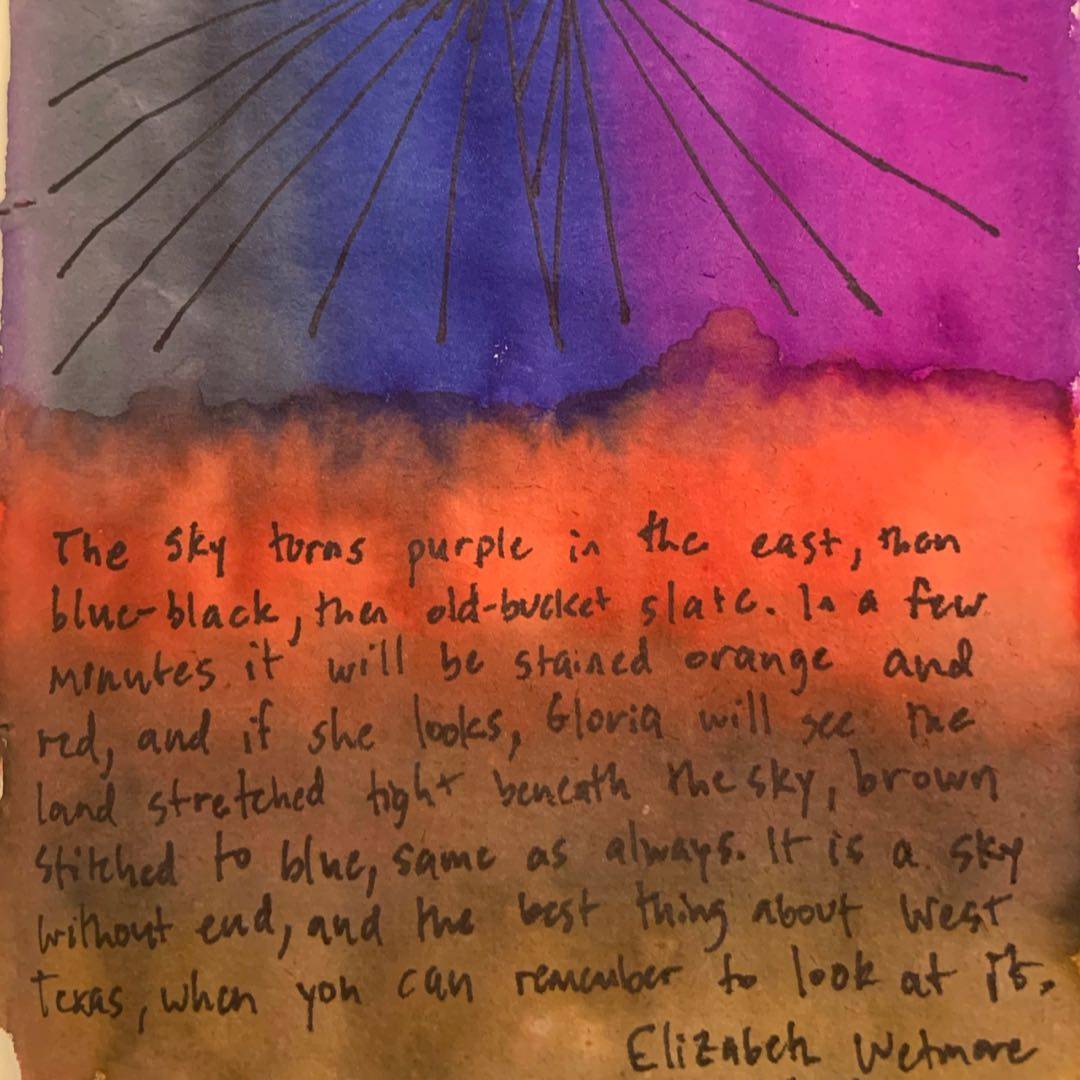 The sky turns purple in the east, then
blue-black, then old-bucket slate. In a few
minutes it will be stained orange and
red, and if she looks, Gloria will see the
land stretched tight beneath the sky, brown
stitched to blue, same as always. It is a sky
without end, and the best thing about West
Texas, when you can remember to look at it.
Elizabeth Wetmore